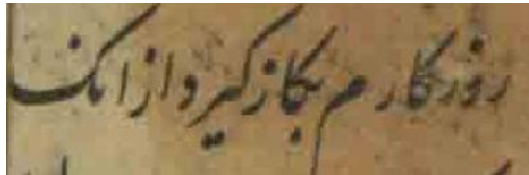 روزکارم بکاز کیرد از انک